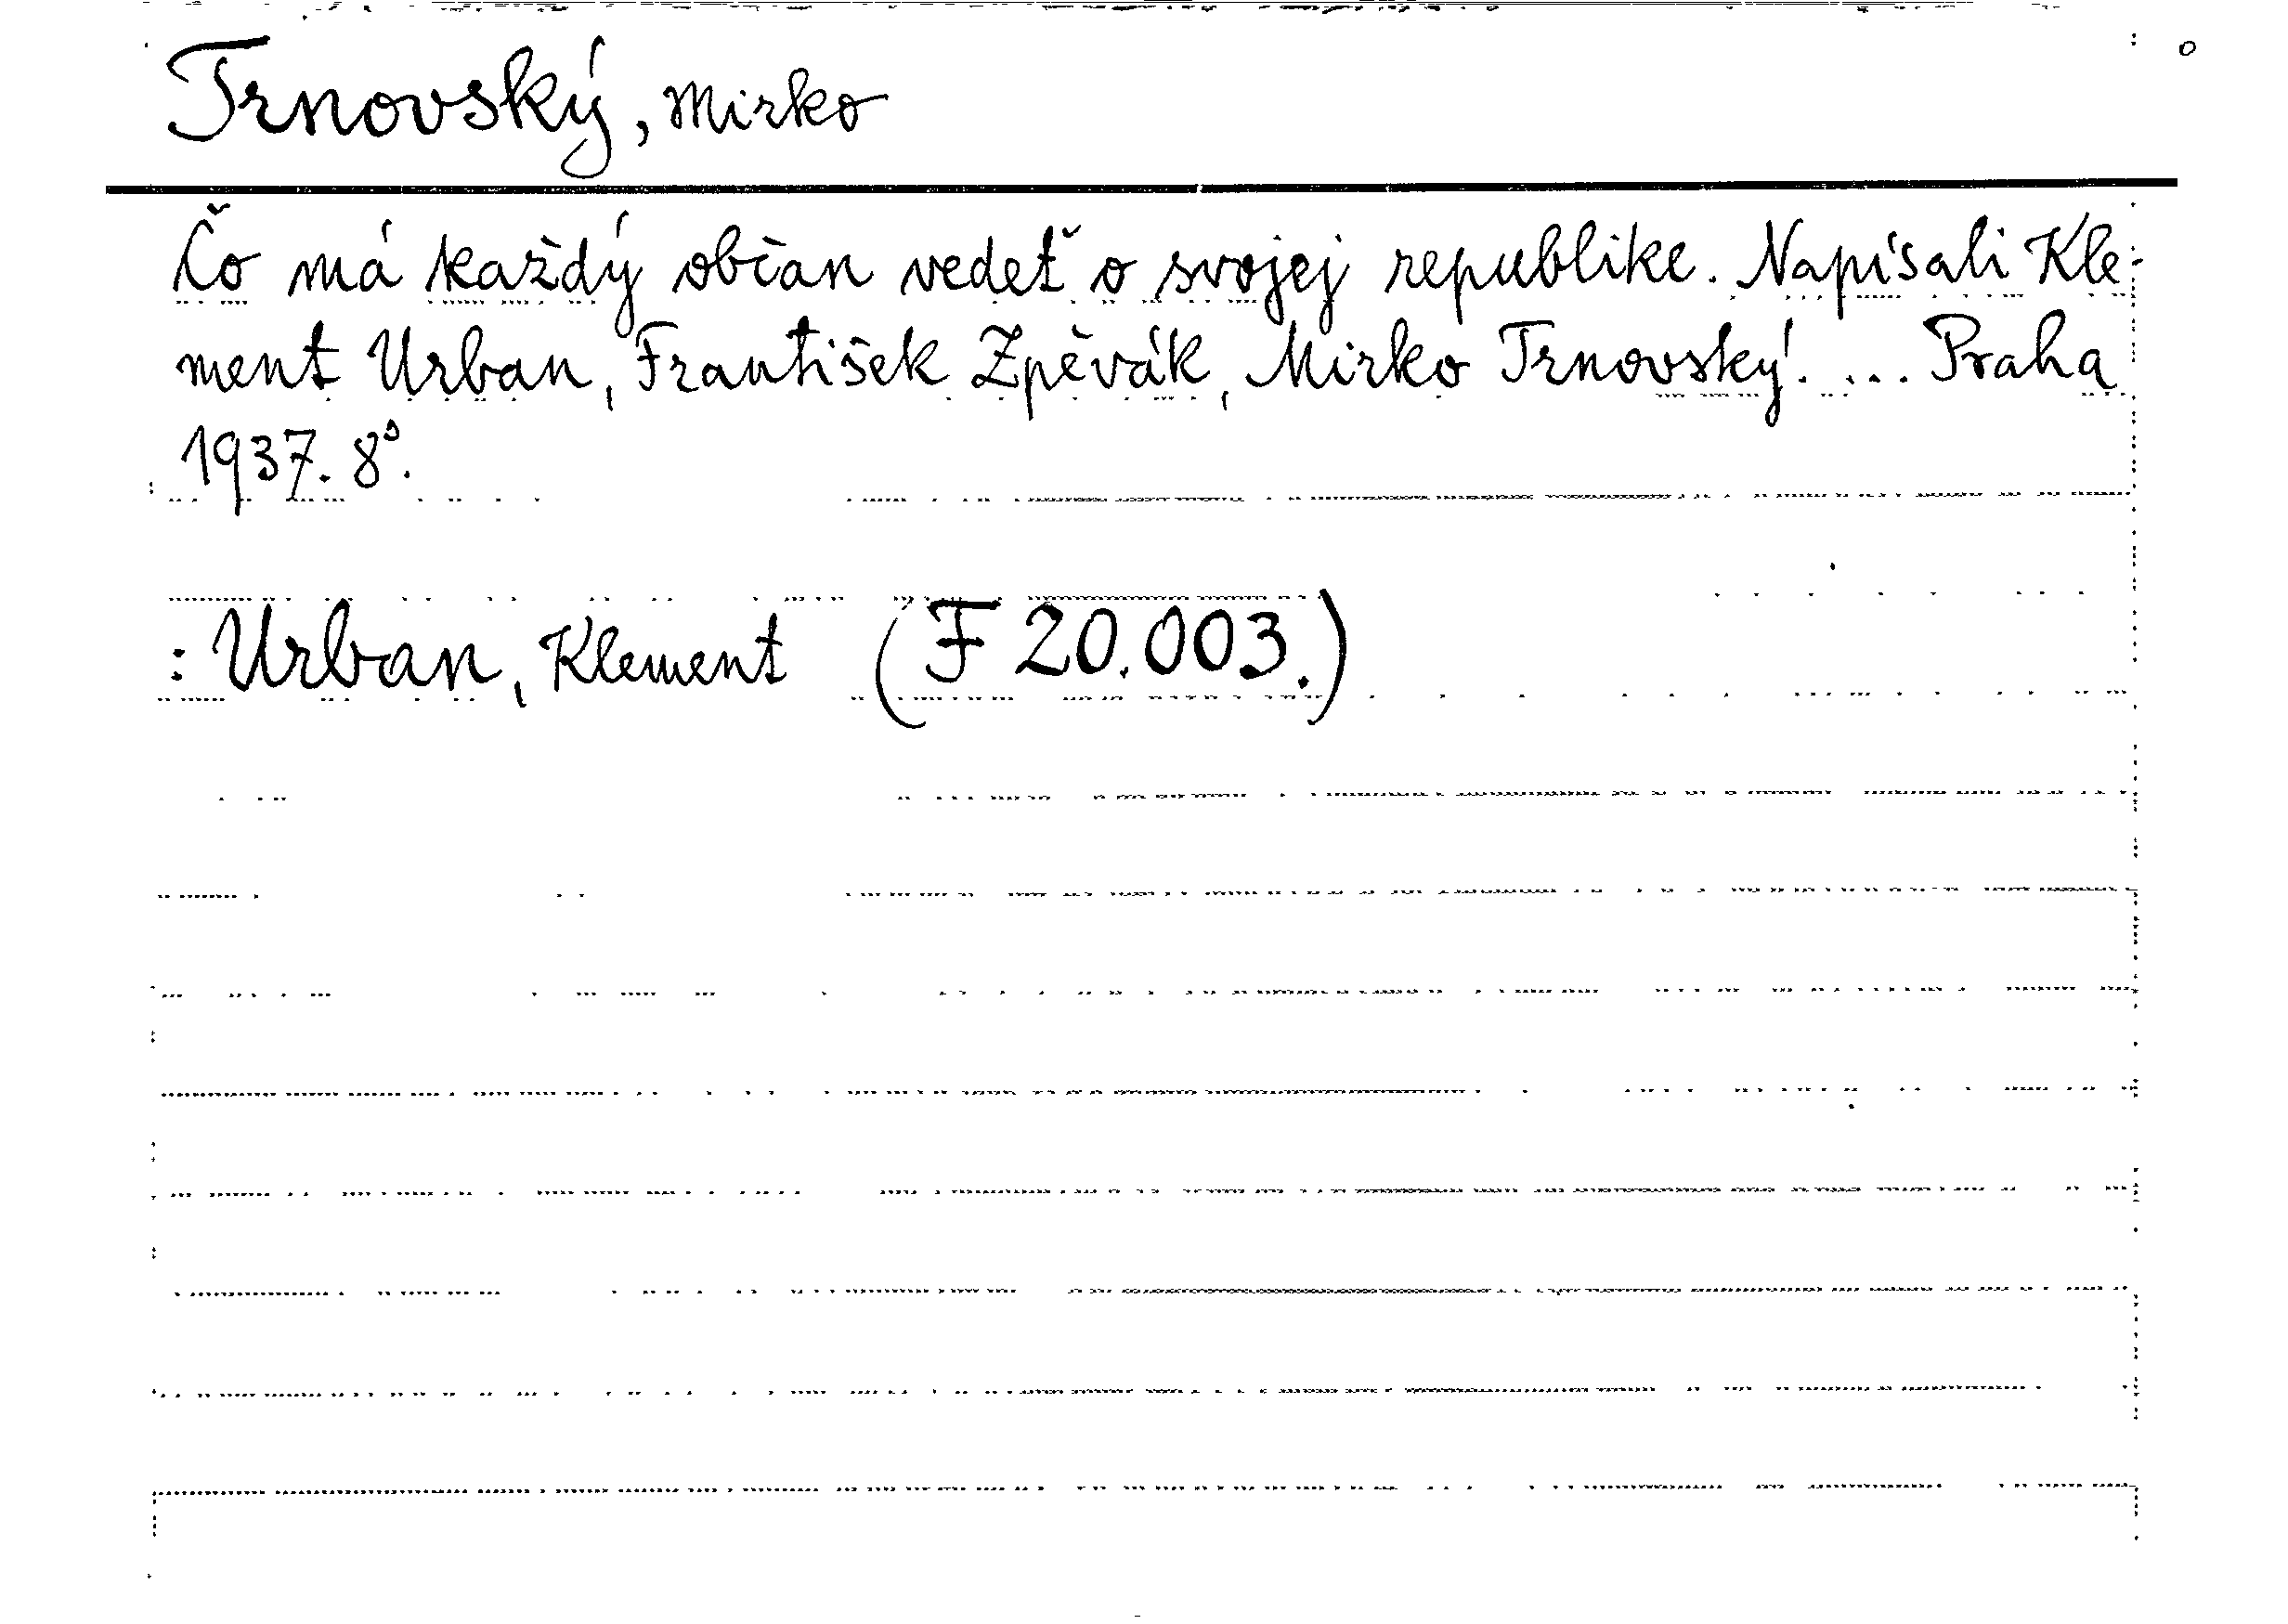 Trnovský, Mirko
Čo má každý občan vedeť o svojej republike. Napísali Kle-
ment Urban, František Zpěvák, Mirko Trnovský. ... Praha
1937. 8°.
: Urban, Klement (F 20.003.)